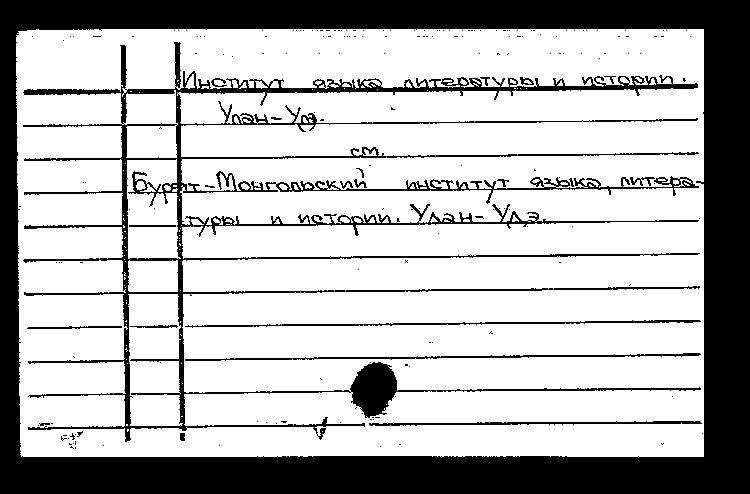 Институт языка, литературы и истории.
Улан-Удэ.
см.
Бурят-Монгольский институт языка, литера-
туры и истории. Улан-Удэ.